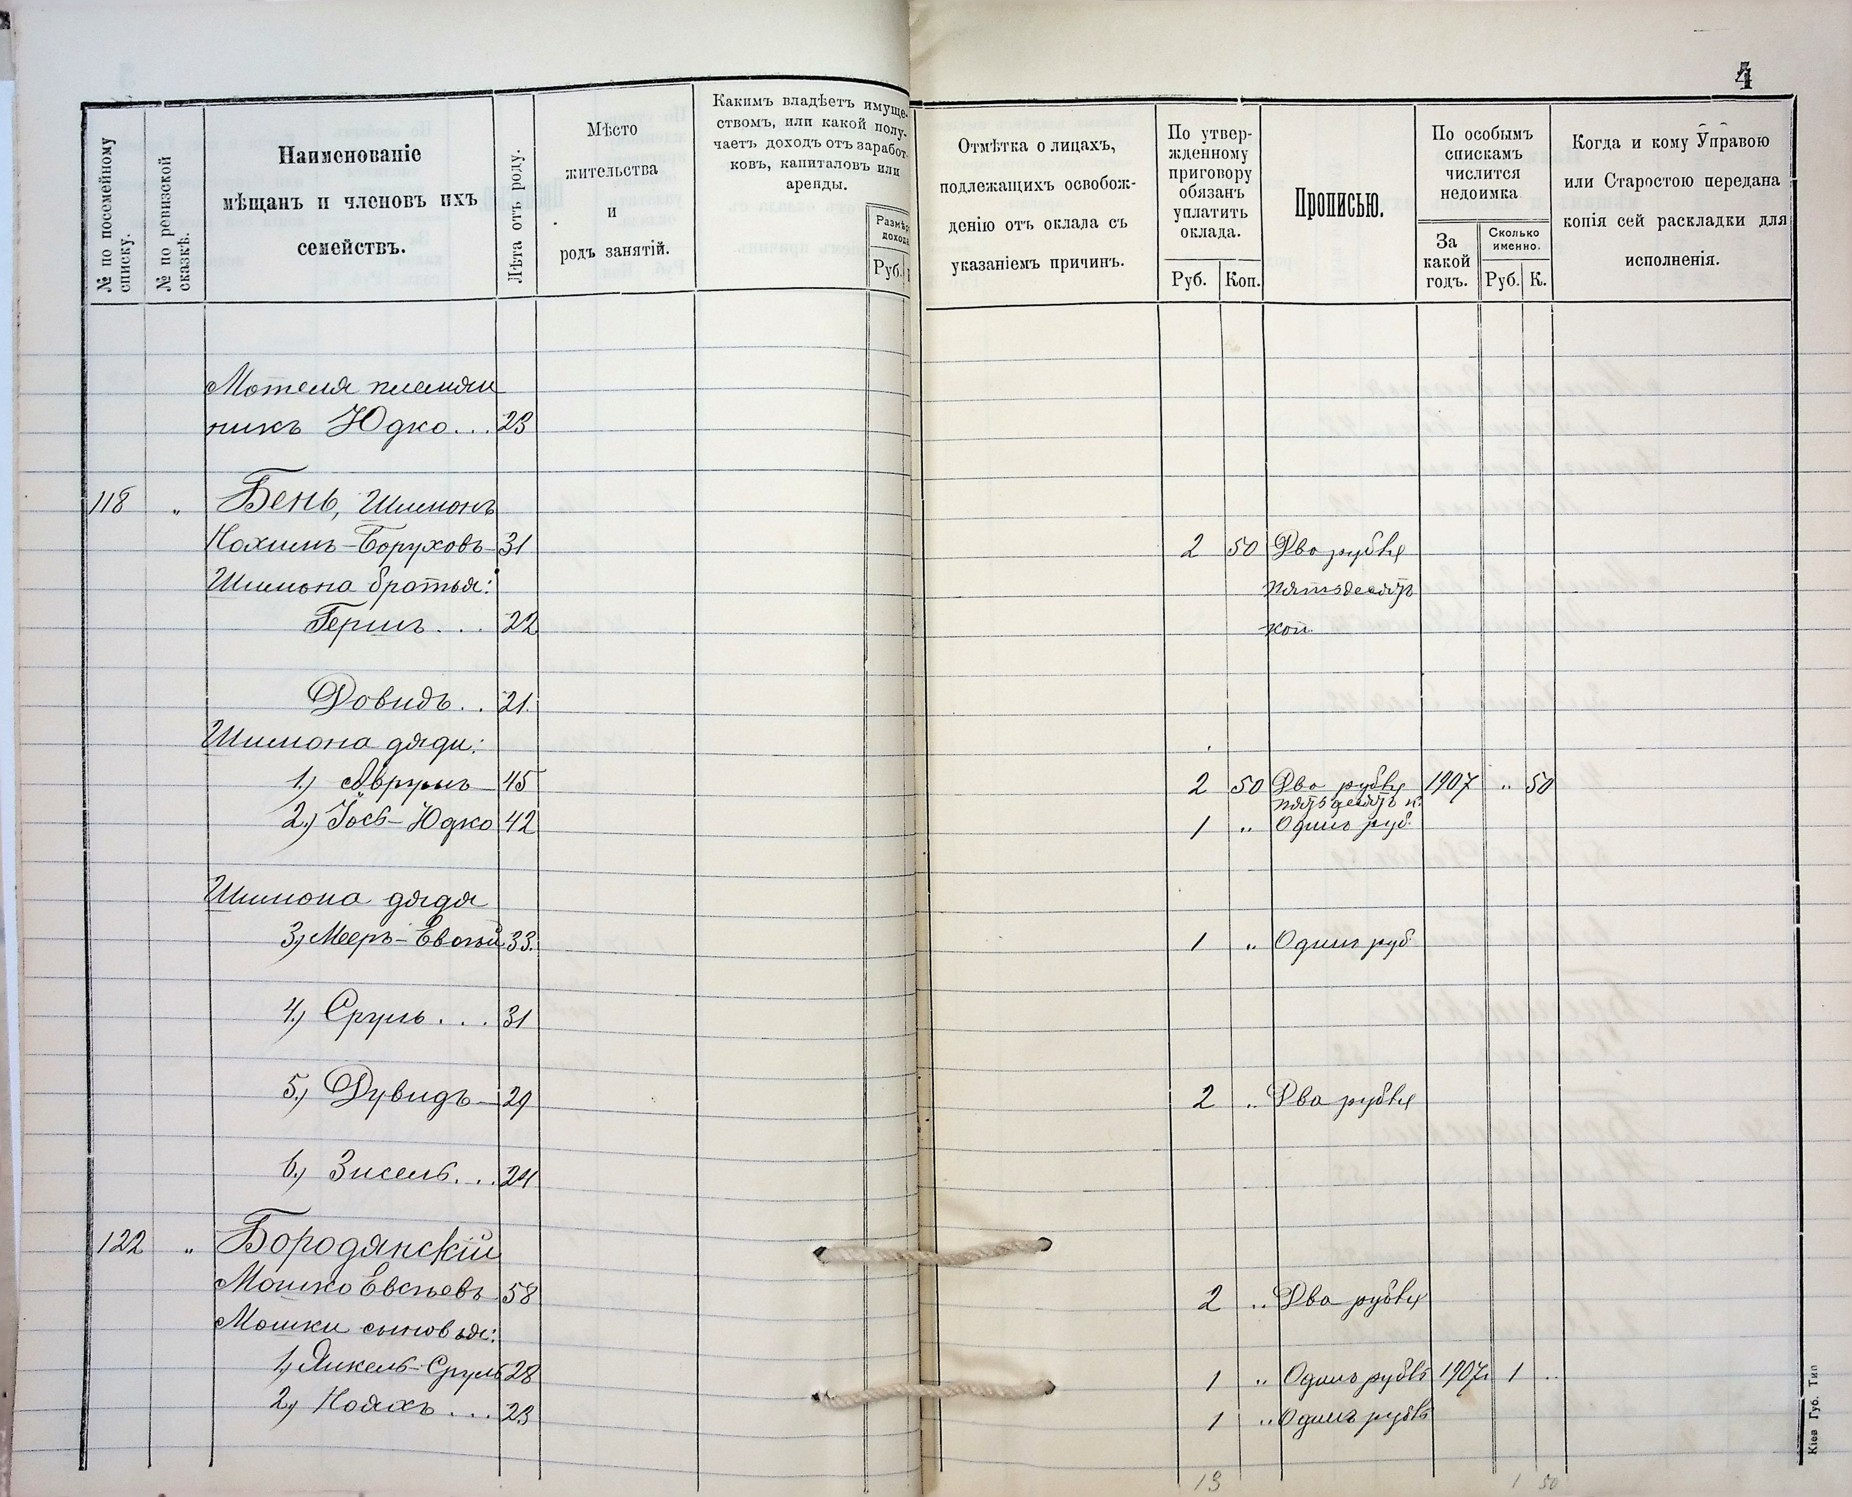 4
№ по посемейному списку.
№ по ревизской сказкѣ.
Наименованіе
мѣщанъ и членовъ ихъ
семействъ.
Лѣта отъ роду.
Мѣсто
жительства
и
родъ занятій.
Какимъ владѣетъ имуще-
ствомъ, или какой полу-
чаетъ доходъ отъ заработ-
ковъ, капиталовъ или
аренды.
Размѣръ
дохода
Руб.
Отмѣтка о лицахъ,
подлежащихъ освобож-
денію отъ оклада съ
указаніемъ причинъ.
По утвер-
жденному
приговору
обязанъ
уплатить
оклада.
Руб. Коп.
Прописью.
По особымъ
спискамъ
числится
недоимка
За
какой
годъ.
Сколько
именно.
Руб. К.
Когда и кому Управою
или Старостою передана
копія сей раскладки для
исполненія.
Мотеля племян
никъ Юдко... 23
118 " Бень, Шимонъ
Нохимъ-Боруховъ 31 2 50 Два рубля
Шимона братья: пятьдесятъ
Гершъ... 22 коп.
Довидъ.. 21.
Шимона дяди:
1.) Аврумъ 45 2 50 Два рубля 1907 " 50
пятьдесятъ к.
2.) Іось-Юдко 42 1 " Одинъ руб.
Шимона дядя
3.) Мееръ-Евсѣй 33. 1 " Одинъ руб
4.) Сруль... 31
5.) Дувидъ 29 2 " Два рубля
6.) Зисель... 24
122 " Бородянскій
Мошко Евсѣевъ 58 2 " Два рубля
Мошки сыновья:
1.) Янкель-Сруль 28 1 " Одинъ рубль 1907 1 "
2.) Ноахъ... 23 1 " Одинъ рубль
13 1 50
Кіев Губ. Тип